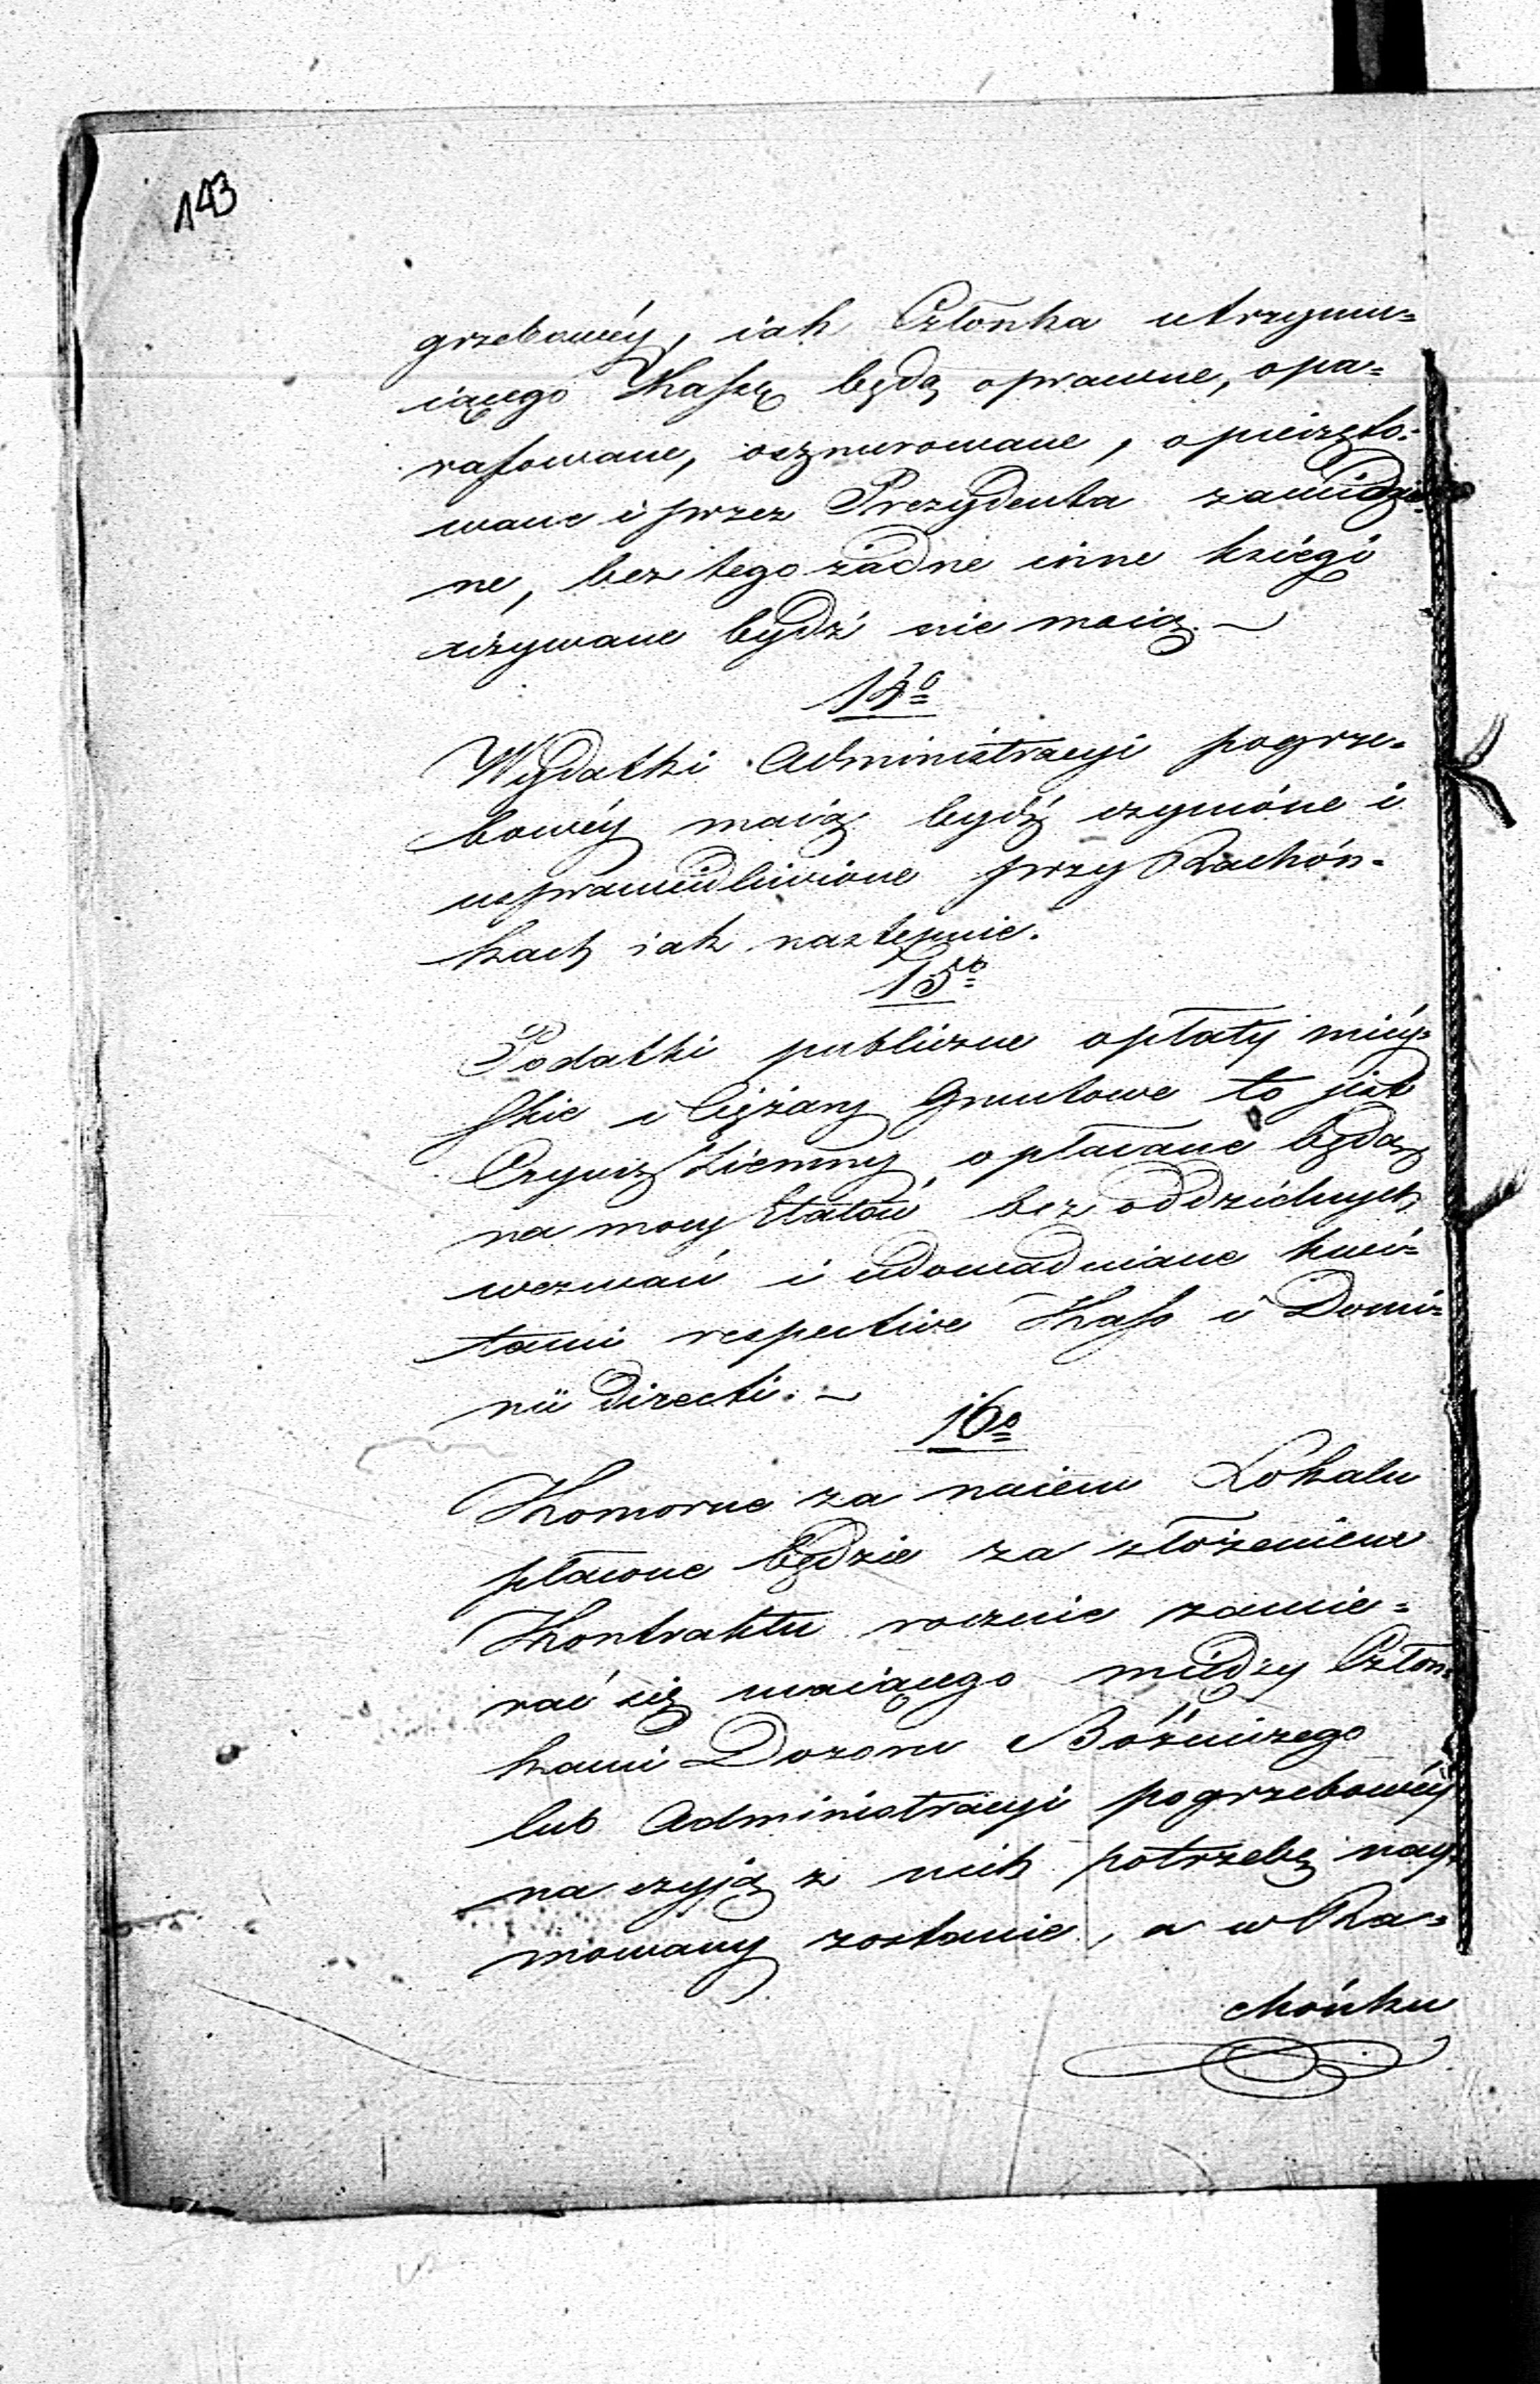 143
grzebowéy, iak Członka utrzymu=
iącego Kassę będą oprawne, opa=
rafowane, osznurowane, opieczęto=
wane i przez Prezydenta zawidzio=
ne, bez tego żadne inne księgi
używane bydź nie maią. ~
14º
Wydatki Administracyi pogrze=
bowéy maią bydź czynióne i
usprawiedliwione przy Rachón=
kach iak następnie.
15º
Podatki publiczne opłaty miey=
skie i Ciężary Gruntowe to jest
Czynsz Ziemny opłacane będą
na mocy Etatów bez oddzielnych
wezwań i udowadniane kwi=
tami respective Kass i Domi=
nii Directi. ~
16º
Komorne za naiem Lokalu
płacone będzie za złożeniem
Kontraktu rocznie zawie=
rać się maiącego między Człon=
kami Dozoru Bóżniczego
lub Administracyi pogrzebowéy
na czyją z nich potrzebę nay=
mowany zostanie, a w Ra=
chónku